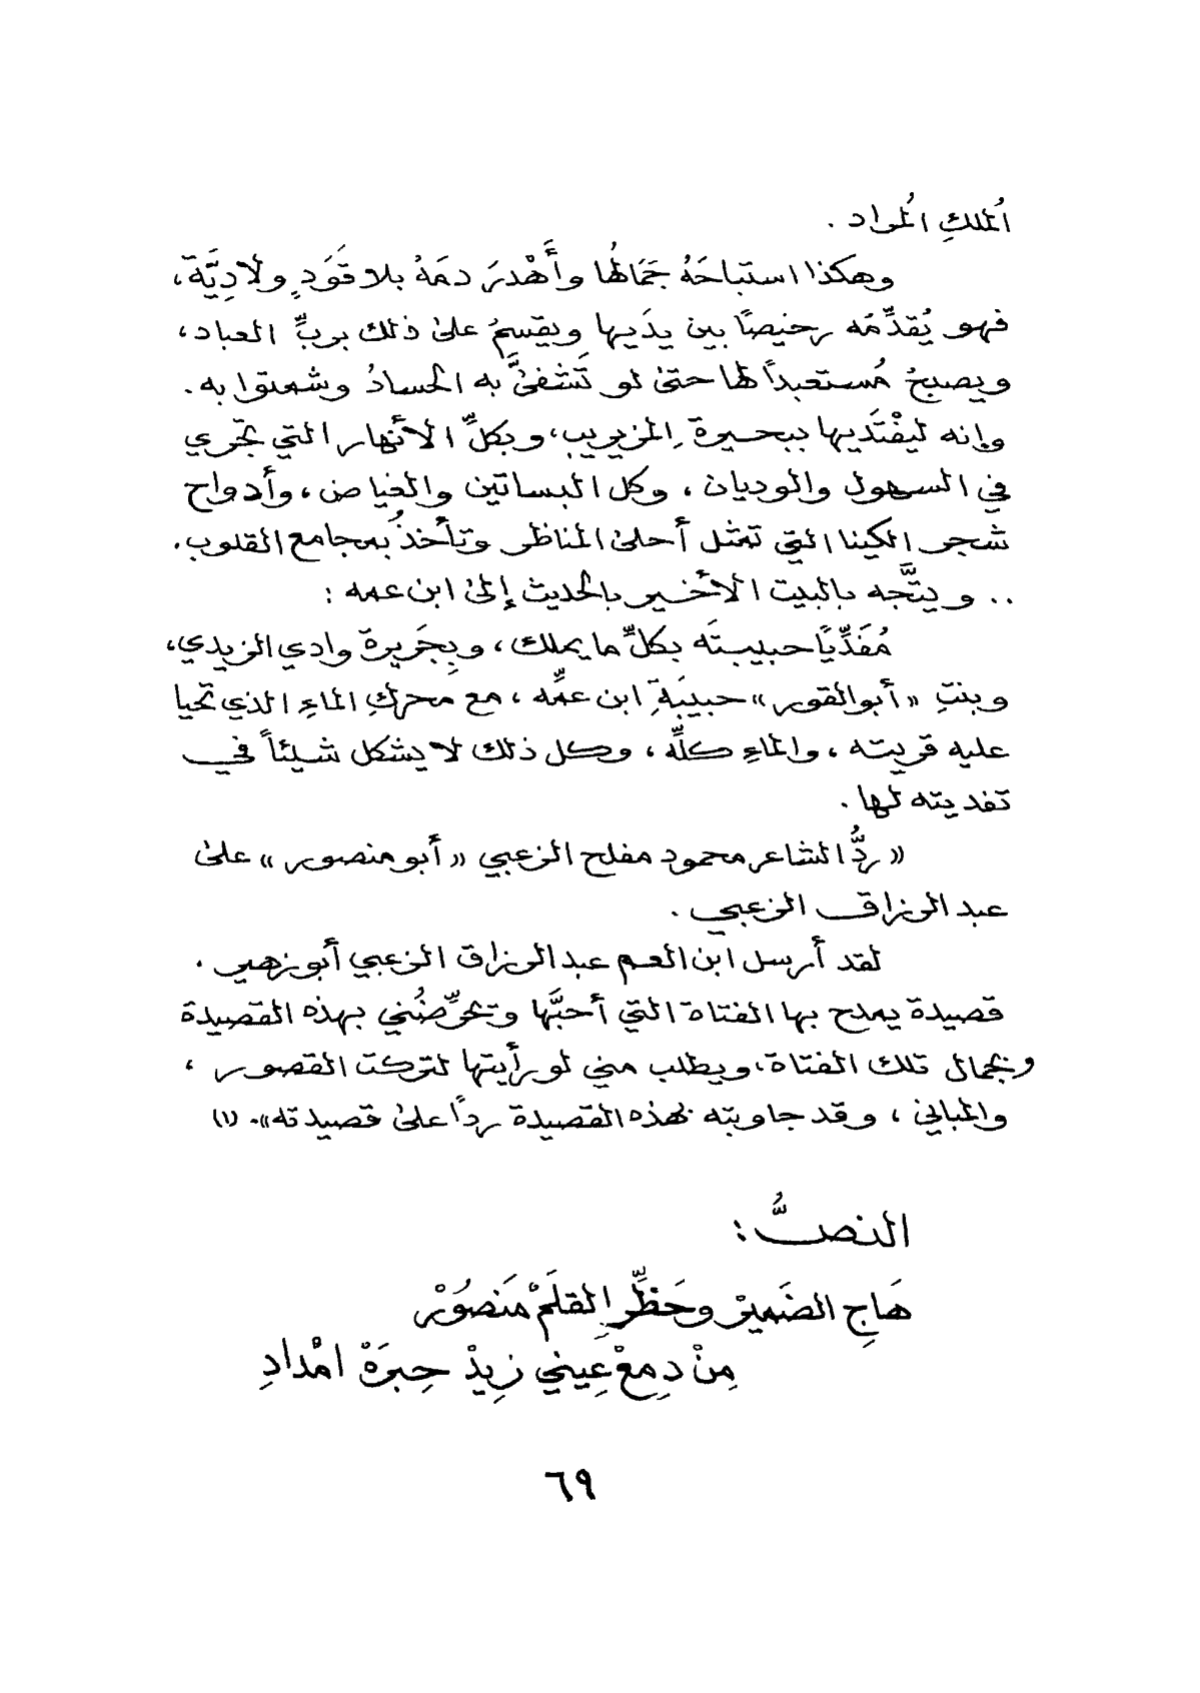 اُلملكِ اُلمراد .
وهكذا استباحَهُ جَمَالُها وأَهْدرَ دمَهُ بلا قَوَدٍ ولا دِيَّة،
فهو يُقدِّمُه رخيصًا بين يدَيها ويقسِمُ على ذلك بربِّ العباد،
ويصبحُ مُستعبداً لها حتى لو تَشَفَّى به الحسادُ وشمتوا به.
وإنه ليفْتَديها ببحيرة المزيريب، وبكلِّ الأنهار التي تجري
في السهول والوديان، وكل البساتين والغياض، وأدواح
شجر الكينا التي تمثل أحلى المناظر وتأخذُ بمجامع القلوب.
.. ويتَّجه بالبيت الأخير بالحديث إلى ابن عمه :
مُفَدِّيًا حبيبتَه بكلِّ ما يملك، وبِجَريرة وادي الزيدي،
وبنتِ «أبوالقور» حبيبَةِ ابن عمِّه، مع محركِ الماءِ الذي تحيا
عليه قريته، والماءِ كلِّه، وكل ذلك لا يشكل شيئاً في
تفديته لها.
« ردُّ الشاعر محمود مفلح الزعبي «أبو منصور» على
عبد الرزاق الزعبي .
لقد أرسل ابن العم عبد الرزاق الزعبي أبو زهير .
قصيدة يمدح بها الفتاة التي أحبَّها وتحرِّضُني بهذه القصيدة
وبجمال تلك الفتاة، ويطلب مني لو رأيتها لتركت القصور ،
والمباني ، وقد جاوبته بهذه القصيدة رداً على قصيدته». (١)
النصُّ :
هَاجِ الضَميرْ وحَظِّرِ القلَمْ مَنصُوْر
مِنْ دِمعْ عِيني زِيدْ حِبرَهْ امْدادِ
٦٩